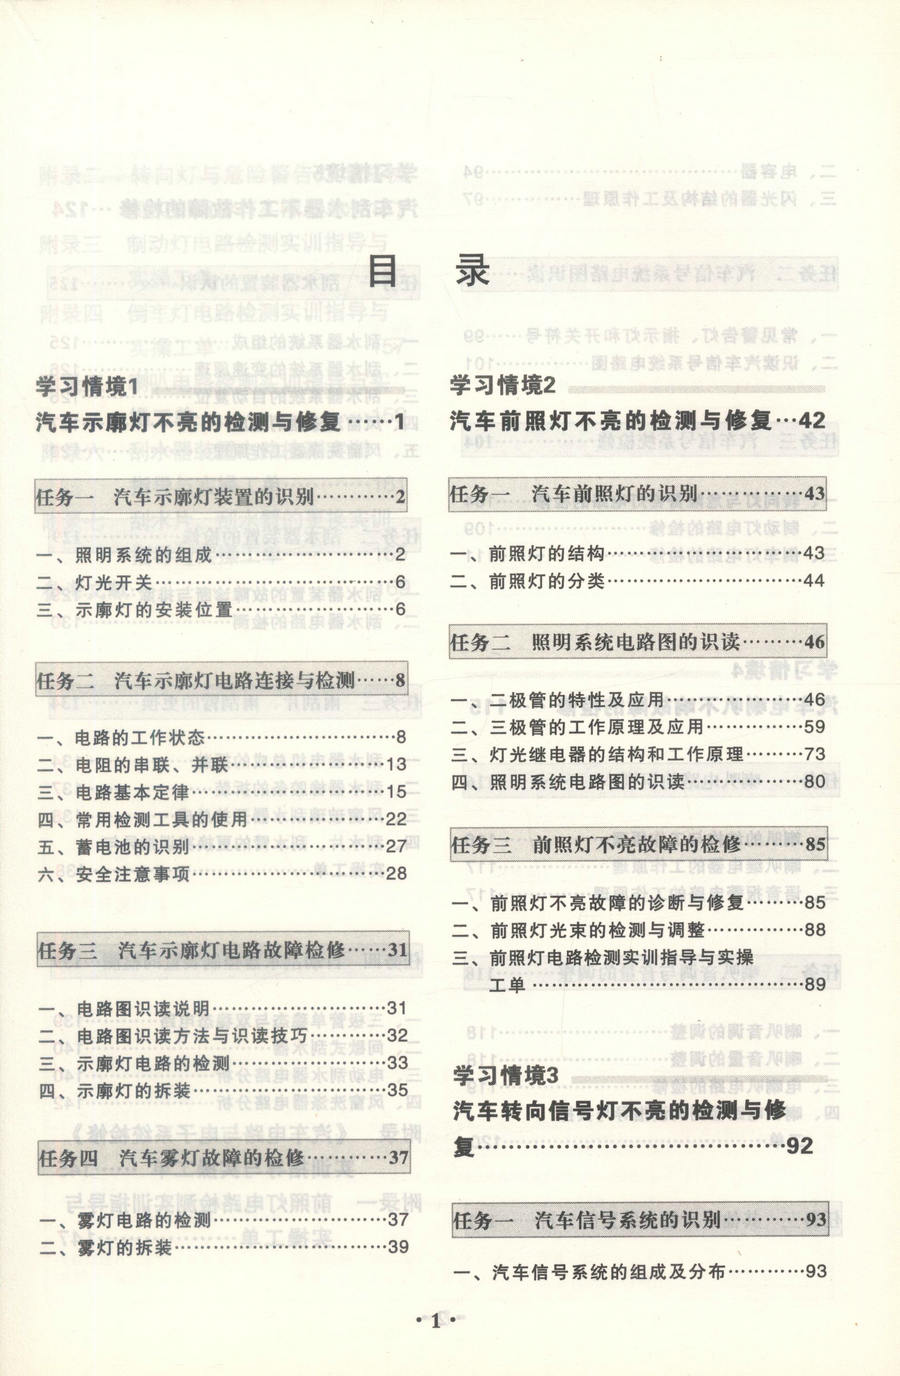 目 录
学习情境1
汽车示廓灯不亮的检测与修复……1
任务一 汽车示廓灯装置的识别…………2
一、照明系统的组成…………………………2
二、灯光开关…………………………………6
三、示廓灯的安装位置………………………6
任务二 汽车示廓灯电路连接与检测……8
一、电路的工作状态…………………………8
二、电阻的串联、并联………………………13
三、电路基本定律……………………………15
四、常用检测工具的使用……………………22
五、蓄电池的识别……………………………27
六、安全注意事项……………………………28
任务三 汽车示廓灯电路故障检修……31
一、电路图识读说明…………………………31
二、电路图识读方法与识读技巧……………32
三、示廓灯电路的检测………………………33
四、示廓灯的拆装……………………………35
任务四 汽车雾灯故障的检修…………37
一、雾灯电路的检测…………………………37
二、雾灯的拆装………………………………39
学习情境2
汽车前照灯不亮的检测与修复…42
任务一 汽车前照灯的识别……………43
一、前照灯的结构……………………………43
二、前照灯的分类……………………………44
任务二 照明系统电路图的识读………46
一、二极管的特性及应用……………………46
二、三极管的工作原理及应用………………59
三、灯光继电器的结构和工作原理………73
四、照明系统电路图的识读…………………80
任务三 前照灯不亮故障的检修………85
一、前照灯不亮故障的诊断与修复………85
二、前照灯光束的检测与调整………………88
三、前照灯电路检测实训指导与实操
工单……………………………………89
学习情境3
汽车转向信号灯不亮的检测与修
复…………………………………92
任务一 汽车信号系统的识别…………93
一、汽车信号系统的组成及分布…………93
·1·